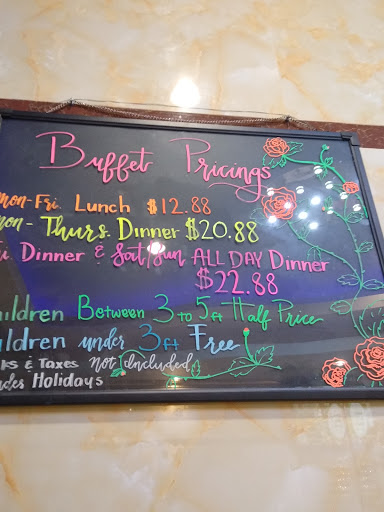 Buffet Pricings
mon-Fri. Lunch $12.88
mon- Thurs. Dinner $20.88
Fri. Dinner & Sat/Sun ALL DAY Dinner
$22.88
hildren Between 3 to 5 ft Half Price
ildren under 3 ft Free
ks & Taxes not included
udes Holidays